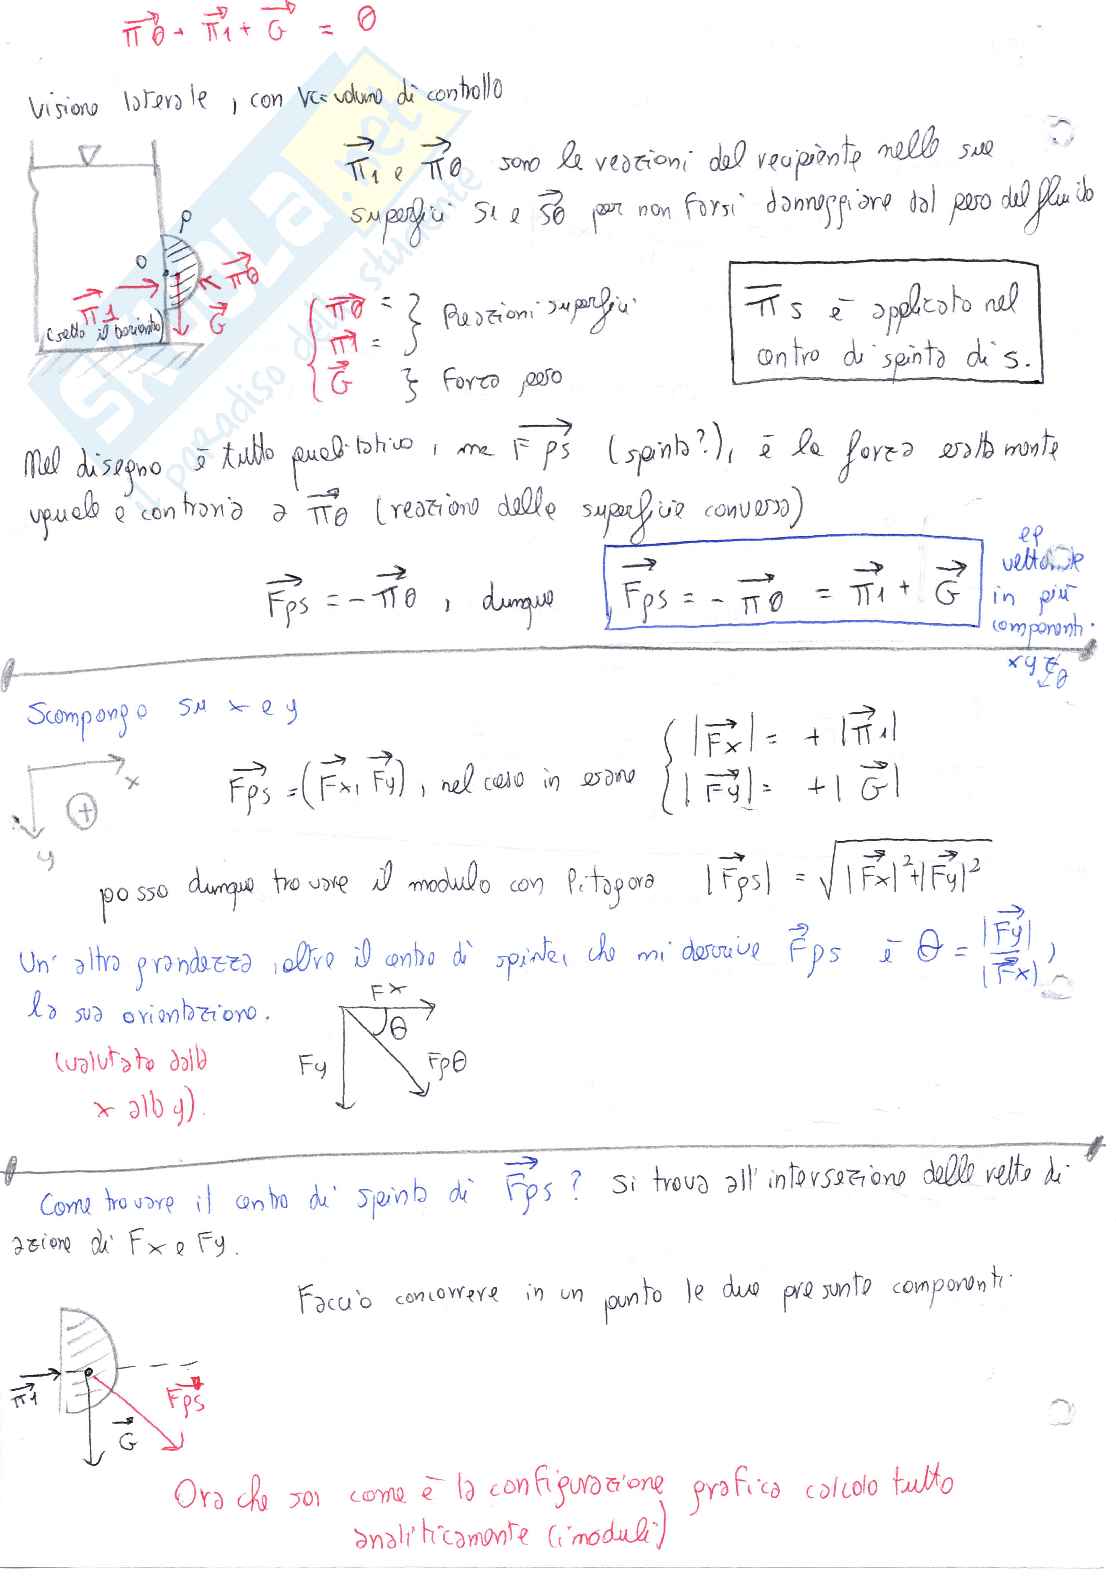 π0 + π1 + G = 0
Visione laterale, con Vc = volume di controllo
π1 e π0 sono le reazioni del recipiente nelle sue
superfici S1 e S0 per non farsi danneggiare dal peso del fluido
P
O
π1
π0
G
(sotto il baricentro)
π0 =
π1 =
} Reazioni superfici
G } Forza peso
πs è applicato nel
centro di spinta di s.
Nel disegno è tutto qualitativo, ma Fps (spinta?), è la forza esattamente
uguale e contraria a π0 (reazione della superficie convessa)
Fps = - π0, dunque
Fps = - π0 = π1 + G
eq
vettoriale
in più
componenti.
x y z θ
Scompongo su x e y
x
+
y
Fps = (Fx, Fy), nel caso in esame
|Fx| = + |π1|
|Fy| = + |G|
posso dunque trovare il modulo con Pitagora |Fps| = √|Fx|²+|Fy|²
Un'altra grandezza, oltre il centro di spinta, che mi descrive Fps è θ = |Fy| / |Fx|,
la sua orientazione.
(valutato dalla
x alla y).
Fx
θ
Fy
Fpθ
Come trovare il centro di spinta di Fps? Si trova all'intersezione delle rette di
azione di Fx e Fy.
Faccio concorrere in un punto le due presunte componenti.
π1
Fps
G
Ora che so come è la configurazione grafica calcolo tutto
analiticamente (i moduli)
SKUOLA.net
il paradiso dello studente